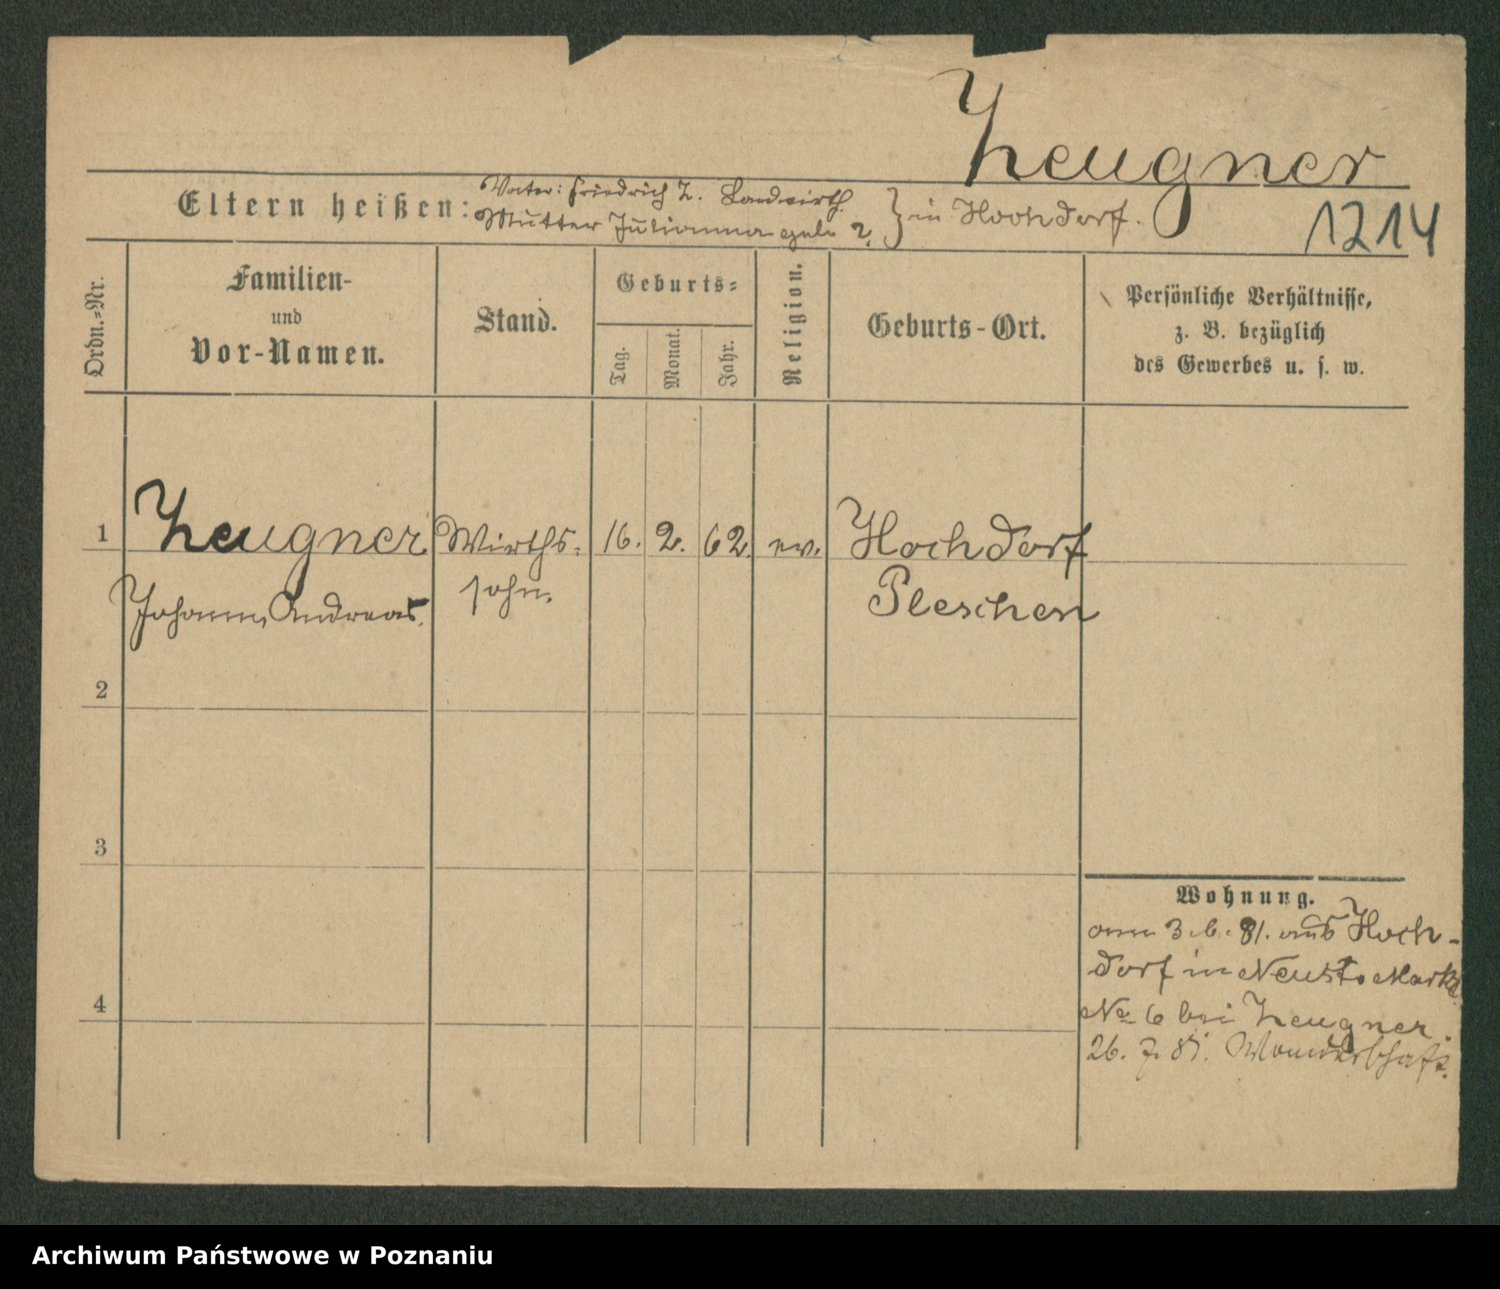 Zeugner
Eltern heißen: Vater: Friedrich Z. Landwirth
Mutter Julianna geb. ? } in Hochdorf.
1214
Ordn.=Nr.
Familien-
und
Vor-Namen.
Stand.
Geburts=
Tag.
Monat.
Jahr.
Religion.
Geburts-Ort.
Persönliche Verhältnisse,
z. B. bezüglich
des Gewerbes u. s. w.
1 Zeugner Wirths- 16. 2. 62. ev. Hochdorf
Johann, Andreas. sohn. Pleschen
2
3
4
Wohnung.
am 3.6.81. aus Hoch-
dorf in Neust. Markt
No 6 bei Zeugner.
26. 7. 81. Wanderschaft.
Archiwum Państwowe w Poznaniu